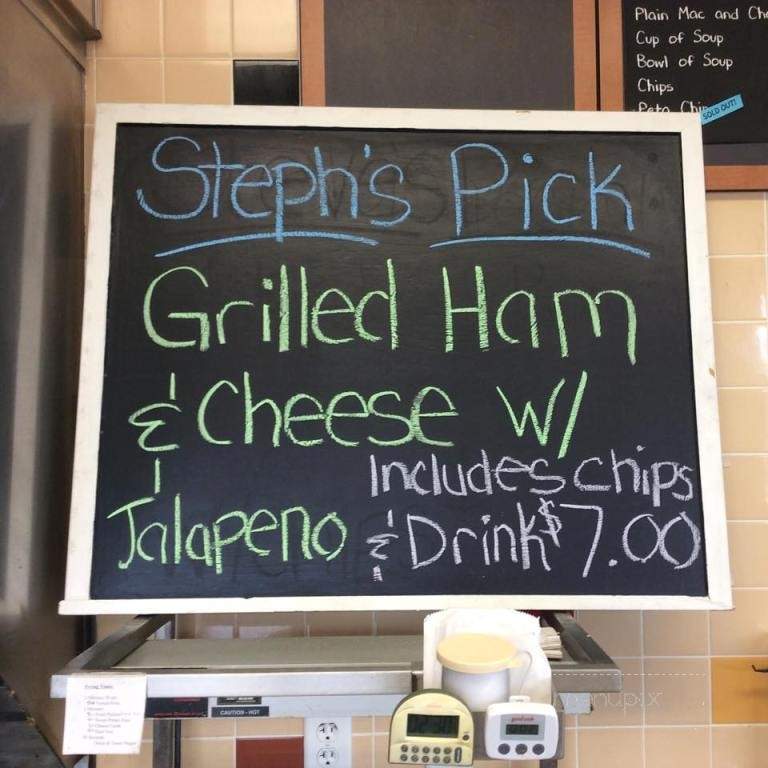 Plain Mac and Ch
Cup of Soup
Bowl of Soup
Chips
Peta Chip
SOLD OUT!
Steph's Pick
Grilled Ham
& Cheese w/
Jalapeno
Includes chips
& Drink $7.00
CAUTION - HOT
menupix